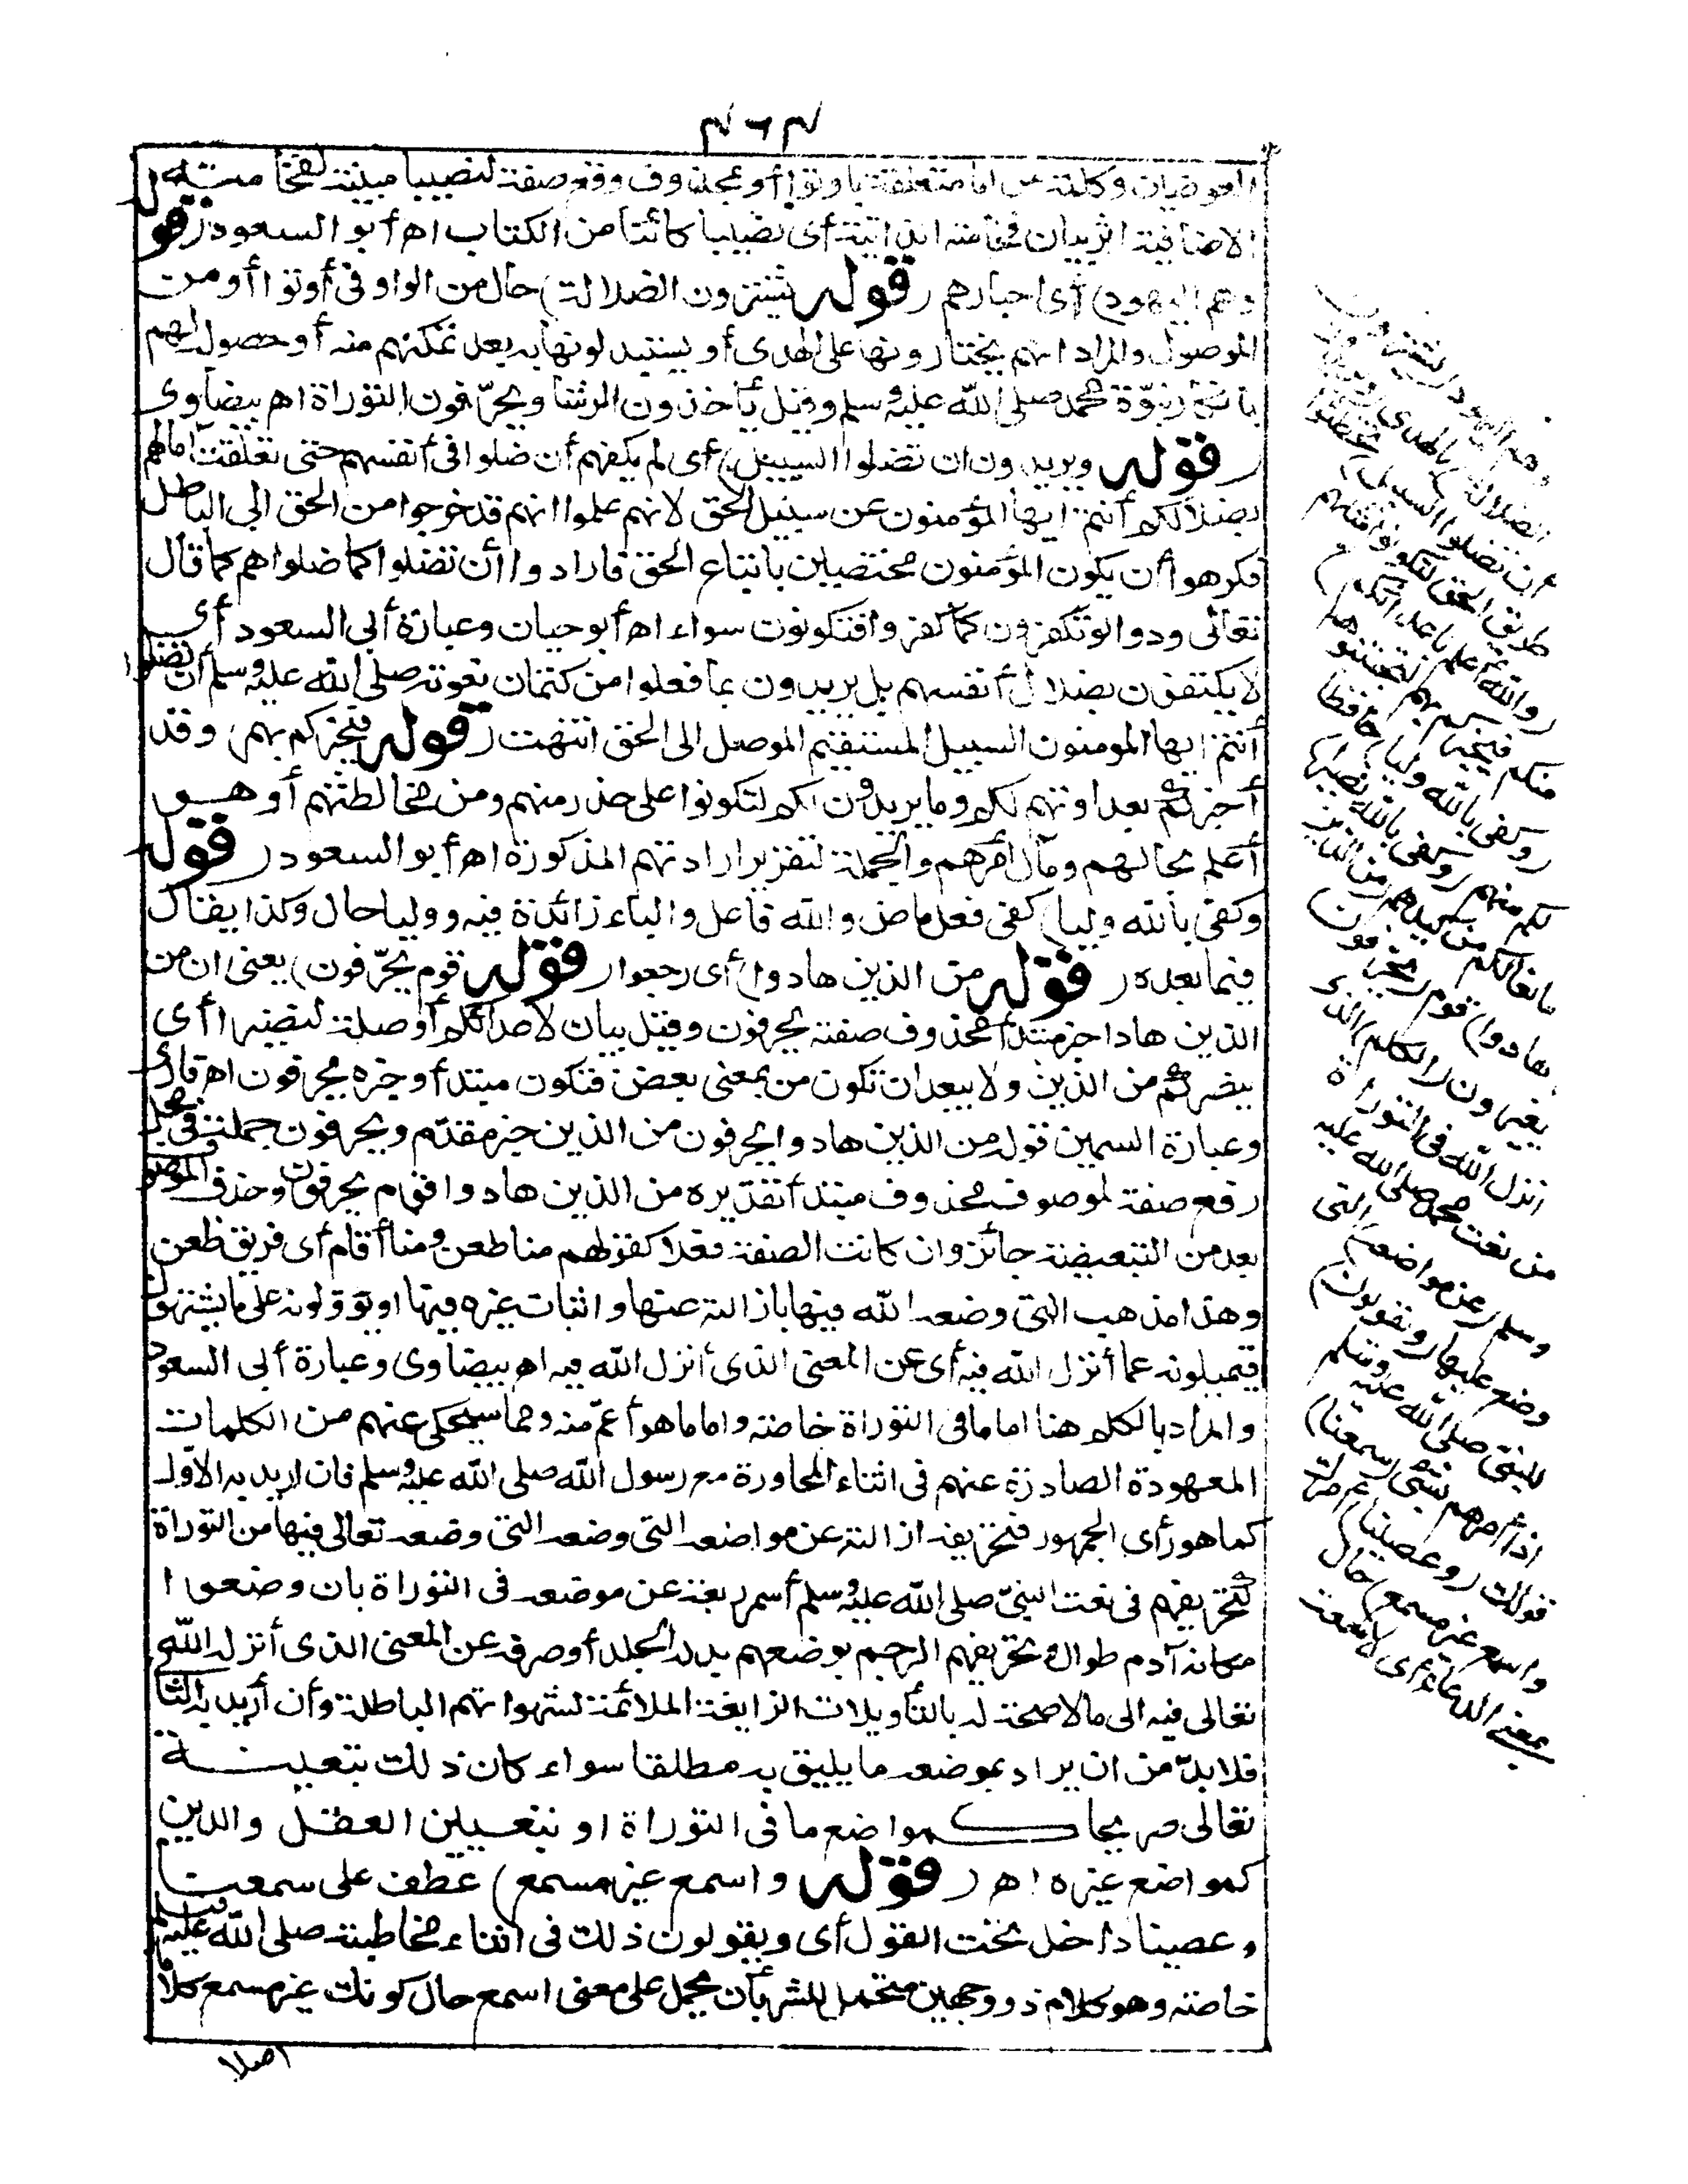 ٣٦٣
العوضيان وكلمة من اما متعلقة باوتوا أو بمحذوف وقع صفة لنصيبا مبينة لفخامته
الاضافية اثر بيان فخامته الذاتية أى نصيبا كائنا من الكتاب اه أبو السعود ( قوله
وهم اليهود) أى احبارهم ( قوله يشترون الضلالة) حال من الواو فى أوتوا أو من
الموصول والمراد انهم يختارونها على الهدى أو يستبدلونها به بعد تمكنهم منه أو حصوله لهم
بانكار نبوّة محمد صلى الله عليه وسلم وقيل يأخذون الرشا ويحرّفون التوراة اه بيضاوى
( قوله ويريدون ان تضلوا السبيل) أى لم يكفهم أن ضلوا فى أنفسهم حتى تعلقت آمالهم
بضلالكم أنتم ايها المؤمنون عن سبيل الحق لانهم علموا انهم قد خرجوا من الحق الى الباطل
فكرهوا أن يكون المؤمنون مختصين باتباع الحق فارادوا أن تضلوا كما ضلوا هم كما قال
تعالى ودوا لو تكفرون كما كفروا فتكونون سواء اه أبو حيان وعبارة أبى السعود أى
لا يكتفون بضلال أنفسهم بل يريدون بما فعلوا من كتمان نعوته صلى الله عليه وسلم أن تضلوا
أنتم ايها المومنون السبيل المستقيم الموصل الى الحق انتهت ( قوله فيخبركم بهم) وقد
أخبركم بعداوتهم لكم وما يريدون لكم لتكونوا على حذر منهم ومن مخالطتهم أو هو
أعلم بحالهم ومآل أمرهم والجملة لتقرير ارادتهم المذكورة اه أبو السعود ( قوله
وكفى بالله وليا) كفى فعل ماض والله فاعل والباء زائدة فيه ووليا حال وكذا يقال
فيما بعده ( قوله من الذين هادوا) أى رجعوا ( قوله قوم يحرّفون) يعنى ان من
الذين هادا خبر مبتدأ محذوف صفته يحرفون وقيل بيان لاعدائكم أو صلة لنصيرا أى
ينصركم من الذين ولا يبعد ان تكون من بمعنى بعض فتكون مبتدأ وخبره يحرفون اه قارى
وعبارة السمين قوله من الذين هادوا يحرفون من الذين خبر مقدّم ويحرفون جملة فى محل
رفع صفة لموصوف محذوف مبتدأ تقديره من الذين هادوا قوم يحرفون وحذف الموصوف
بعد من التبعيضية جائز وان كانت الصفة فعلا كقولهم منا ظعن ومنا أقام أى فريق ظعن
وهذا مذهب التى وضعه الله فيها بازالته عنها واثبات غيره فيها او يؤولونه على ما يشتهون
فيميلونه عما أنزل الله فيه أى عن المعنى الذى أنزل الله فيه اه بيضاوى وعبارة أبى السعود
والمراد بالكلم هنا اما ما فى التوراة خاصة واما ما هو أعمّ منه ومما سيحكى عنهم من الكلمات
المعهودة الصادرة عنهم فى اثناء المحاورة مع رسول الله صلى الله عليه وسلم فان اريد به الأول
كما هو رأى الجمهور فتحريفه ازالته عن مواضعه التى وضعه التى وضعه تعالى فيها من التوراة
كتحريفهم فى نعت النبىّ صلى الله عليه وسلم أسمر ربعة عن موضعه فى التوراة بان وضعوا
مكانه آدم طوال وتحريفهم الرجم بوضعهم بدله الجلد أو صرفه عن المعنى الذى أنزله الله
تعالى فيه الى ما لا صحة له بالتأويلات الزايغة الملائمة لشهواتهم الباطلة وأن أريد به الثا
فلا بدّ من ان يراد بموضعه ما يليق به مطلقا سواء كان ذلك بتعيينه
تعالى صريحا كمواضع ما فى التوراة او بتعيين العقل والدين
كمواضع غيره اه ( قوله واسمع غير مسمع) عطف على سمعت
وعصينا داخل تحت القول أى ويقولون ذلك فى اثناء مخاطبته صلى الله عليه وسلم
خاصة وهو كلام ذو وجهين محتمل للشر بأن يحمل على معنى اسمع حال كونك غير مسمع كلاما
اصلا
وهم اليهود (يشترون
الضلالة) بالهدى
أن تضلوا السبيل)
طريق الحق لتكونوا مثلهم
(والله أعلم باعدائكم)
منكم فيخبركم بهم لتجتنبوهم
(وكفى بالله وليا) حافظا
لكم منهم (وكفى بالله نصيرا)
مانعا لكم من كيدهم (من الذين
هادوا) قوم (يحرفون)
يغيرون (الكلم) الذى
انزل الله فى التوراة
من نعت محمد صلى الله عليه
وسلم (عن مواضعه) التى
وضع عليها (ويقولون)
للنبى صلى الله عليه وسلم
اذا أمرهم بشئ (سمعنا)
قولك (وعصينا) أمرك
(واسمع غير مسمع) حال
بمعنى الدعاء أى لا سمعت